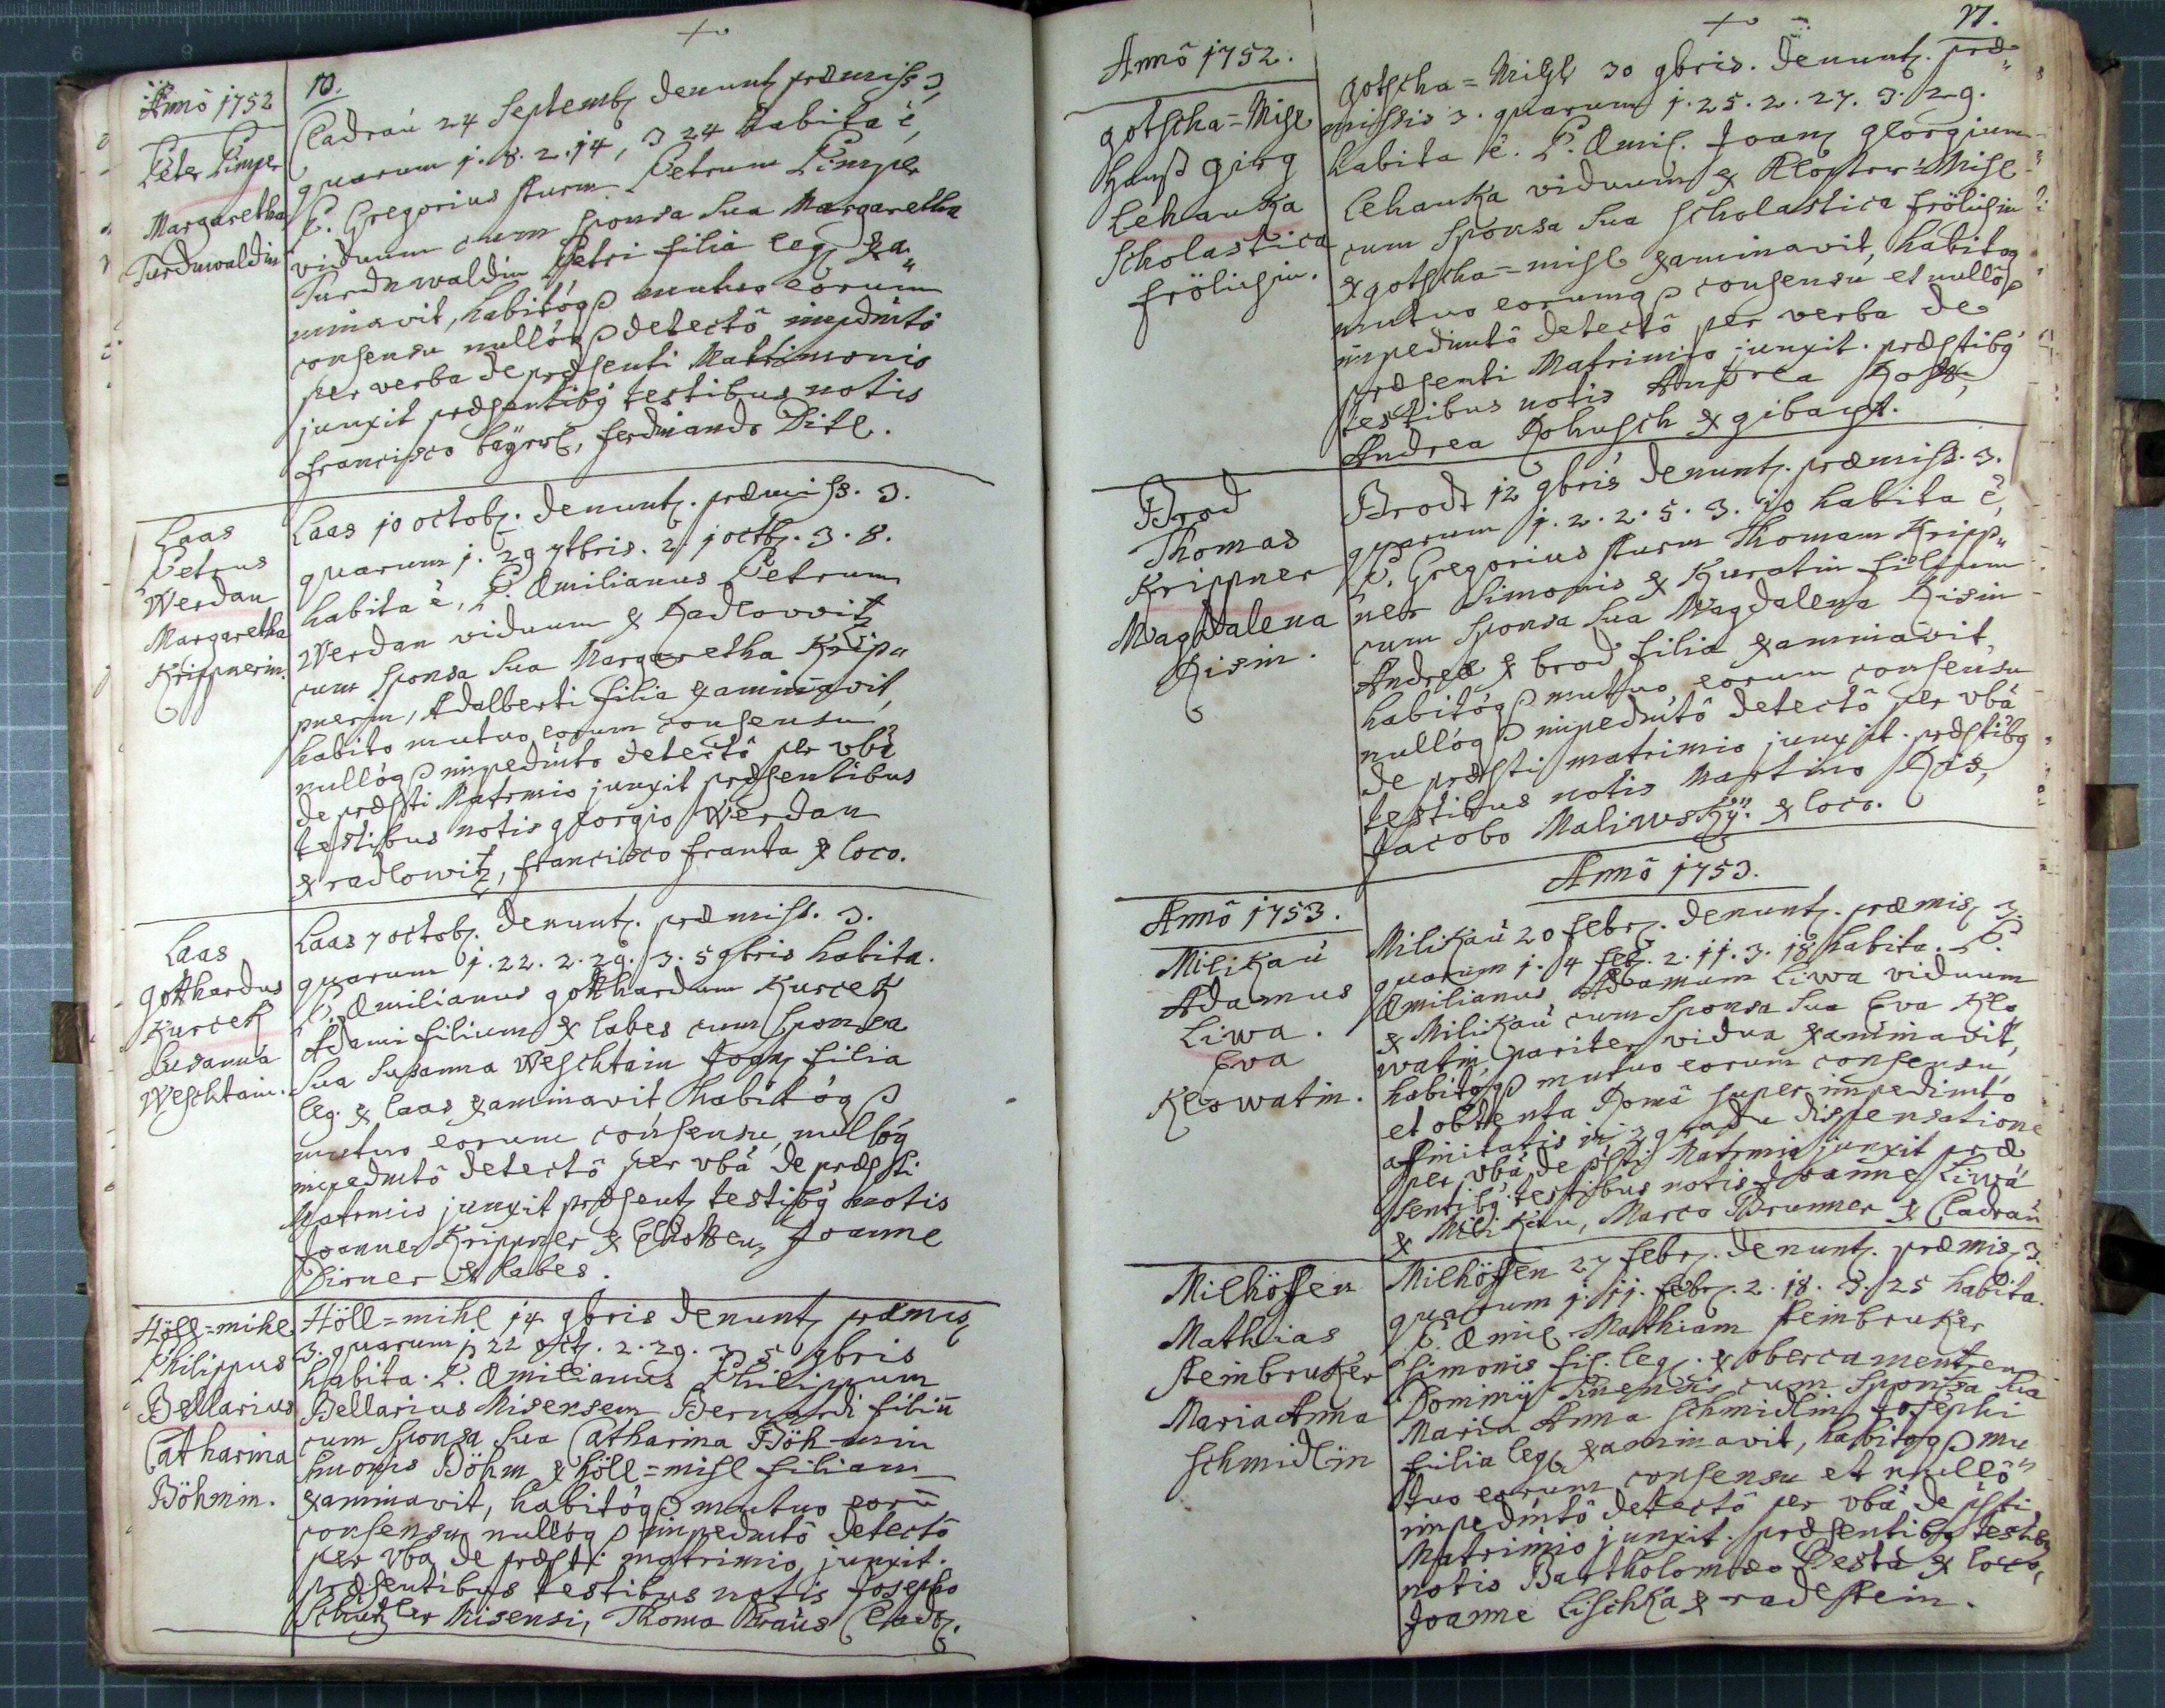 Annô 1752
10.
Peter Pimper
Margaretha
Turdnwaldin
Cladrau 24 Septemb denunt præmiss 3,
quarum 1. 8. 2. 14, 3 24 habita ē,
P. Gregorius Sturm Petrum Pimper
viduum cum sponsa sua Margaretha
Turdnwaldin Petri filia leg. exa„
minavit, habitóq mutuo eorum
consensu nullóq detectô impedmtô
per verba de præsenti Matrimonio
junxit præsentibq testibus notis
Francisco baÿerl, ferdinando Ditl.
Laas
Petrus
Werdan
Margaretha
Krippnerin.
Laas 10 octob. denunt. præmiss. 3.
quarum 1. 29 7tbris. 2. 1 octb. 3. 8.
habita ē, P. Æmilianus Petrum
Werdan viduum ex Radlovvitz
cum sponsa sua Margaretha Krip„
pnerin, Adalberti filia examinavit,
habito mutuo eorum consensu,
nullóq impedmto detectô per vba
de præsti Matrmio junxit præsentibus
testibus notis georgio Werdan
ex radlowitz, francisco franta ex loco.
Laas
gotthardus
Kurcek
Susanna
Weschtain.
Laas 7 octob. denunt. præmiss. 3.
quarum 1. 22. 2. 29. 3. 5 9bris habita.
P. Æmilianus gotthardum Kurcek
Adami filium ex labes cum sponsa
sua Susanna Weschtain Joan filia
leg. ex laas examinavit habitóq
mutuo eorum consensu, nullóq
impedmtô detectô per vba de præsti
Matrmio junxit præsent testibq notis
Joanne Krippner ex Chotten, Joanne
Dirner ex labes.
Höll=mihl
Philippus
Bellarius
Catharina
Böhmin.
Höll=mihl 14 9bris denunt præmis
3. quarum 1 22 oct. 2. 29. 3 5 9bris
habita. P. Æmilianus Philippum
Bellarius Misensem Bernardi filiū
cum sponsa sua Catharina Böhmin
Simonis Böhm ex höll=mihl filiam
examinavit, habitóq mutuo eorū
consensu nullóq impedmtô detectô
per vba de præsti matrimio junxit.
præsentibus testibus notis Josepho
Schützler Misensi, Thoma Kraus Cladr.
Annô 1752.
11.
gotscha=Mihl
Hanß girg
Lehanka
Scholastica
frölichin.
gotscha=Mihl 30 9bris. denunt. præ„
missis 3. quarum 1. 25. 2. 27. 3. 29.
habita ē. P. Æmil. Joan georgium
Lehanka viduum ex Kloster=Mihl
cum sponsa sua Scholastica frölichin
ex gotscha=mihl examinavit, habitoq
mutuo eorumq consensu et nullô
impedimtô detectô per verba de
præsenti Matrimio junxit. præstibq
testibus notis Andrea
Andrea Rohusch ex gibacht.
Brod
Thomas
Krippner
Magdalena
Risin.
Brodt 12 9bris denunt. præmiss. 3.
quarum 1. 2. 2. 5. 3. 10 habita ē,
P. Gregorius Sturm Thomam Kripp„
ner Simonis ex Kuratin filium
cum sponsa sua Magdalena Risin
Andreæ ex brod filia examinavit,
habitóq mutuo eorum consensu
nullóq impedmtô detectô per vba
de præsti matrimio junxit. præstibq
testibus notis Martino Ris,
Jacobo MaliwsKÿ. ex loco.
Annô 1753.
Annô 1753.
MiliKau
Adamus
Liwa.
Eva
Klowatin.
MiliKau 20 febr. denunt. præmis 3.
quarum 1. 4 feb. 2. 11. 3. 18 habita. P.
Æmilianus Adamum Liwa viduum
ex MiliKau cum sponsa sua Eva Klo
watin, pariter vidua examinavit,
habitóq mutuo eorum consensu,
et obtenta Româ super impedimto
affinitatis in 2 gradu dispensatione
per vba de psti Matrmio junxit præ
sentibq testibus notis Joanne Liwa
ex MiliKau, Marco Brunner ex Cladrau
Milhössen
Mathias
Steinbruker
Maria Anna
Schmidlin
Milhössen 27 febr. denunt. præmis. 3.
quarum 1. 11. febr. 2. 18. 3. 25 habita.
P. Æmil Mathiam Steinbruker
Simonis fil. leg. ex obercamentzen
Dominij cum sponsa sua
Maria Anna Schmidlin Josephi
filia leg. examinavit, habitoq mu
tuo eorum consensu et nullô
impedmtô detectô per vba de psti
Matrimio junxit. præsentibq testibq
notis Bartholomæo Pesta ex loco,
Joanne LischKa ex radlstein.